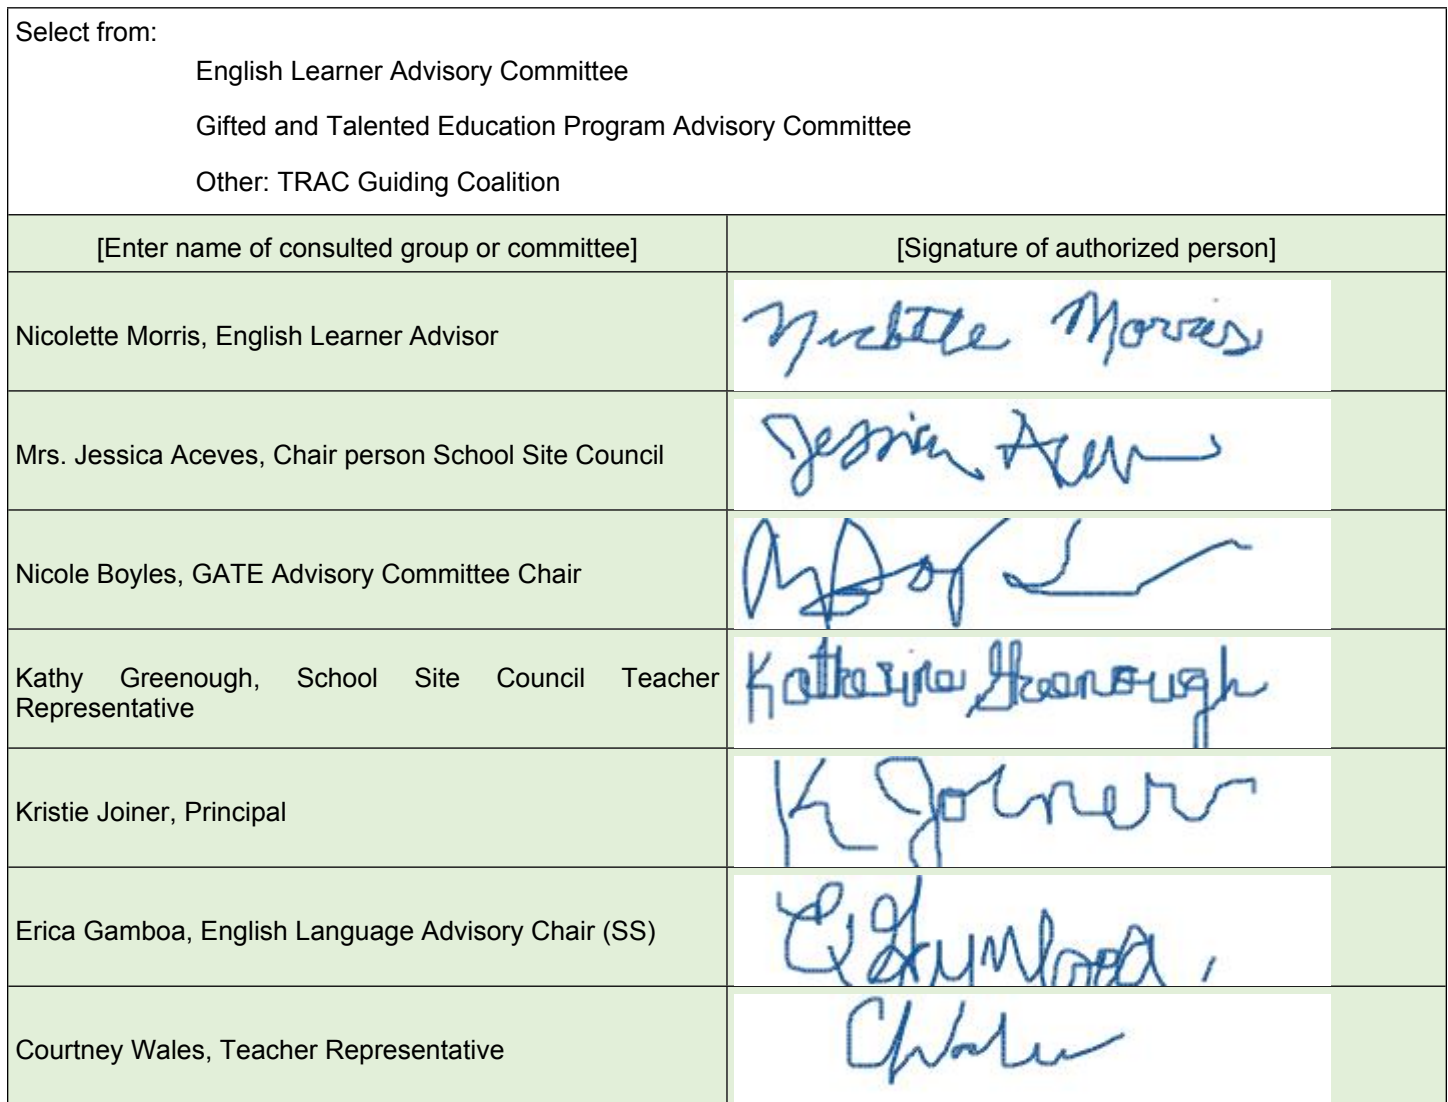 Select from:
English Learner Advisory Committee
Gifted and Talented Education Program Advisory Committee
Other: TRAC Guiding Coalition
[Enter name of consulted group or committee] [Signature of authorized person]
Nicolette Morris, English Learner Advisor
Morris
Mrs. Jessica Aceves, Chair person School Site Council
Jessica
Nicole Boyles, GATE Advisory Committee Chair
Kathy Greenough, School Site Council Teacher
Representative
Katherine Greenough
Kristie Joiner, Principal
K Joiner
Erica Gamboa, English Language Advisory Chair (SS)
Courtney Wales, Teacher Representative